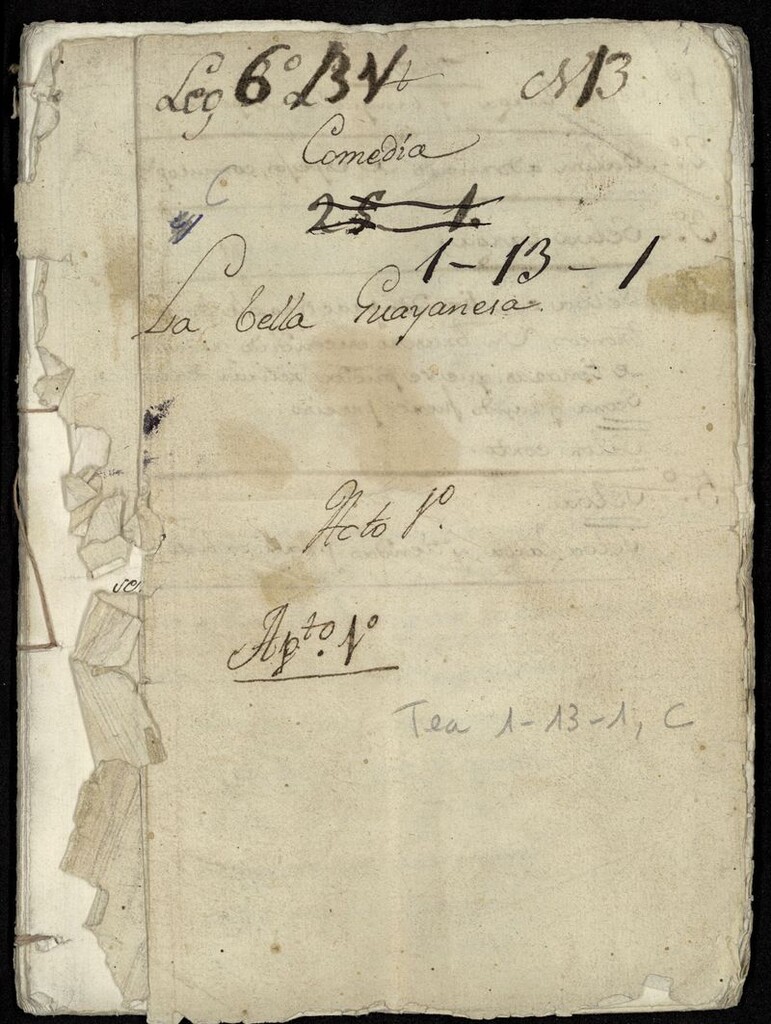 Leg 6º L B Vt N13
Comedia
C
25 1.
1-13-1
La bella Guayanesa.
Acto 1º.
Apto. 1º
Tea 1-13-1, C